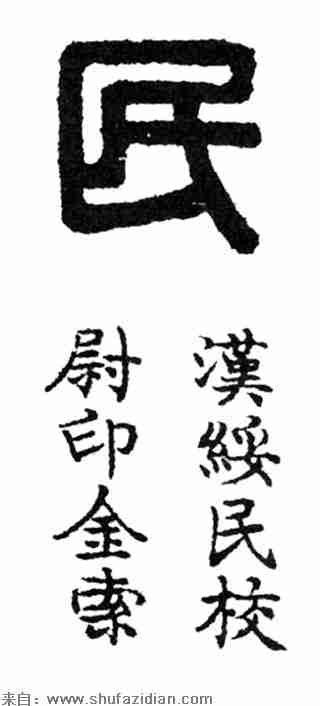 民
漢綏民校
尉印金索
来自：www.shufazidian.com